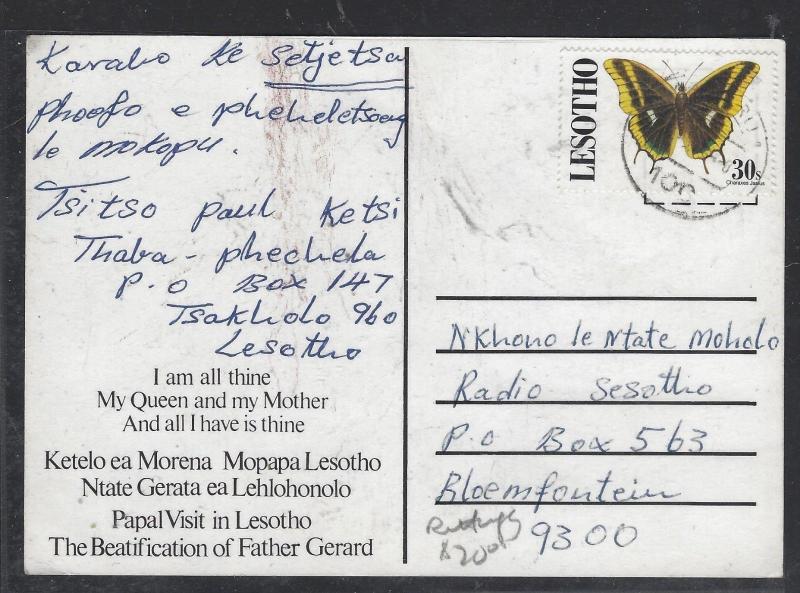 Karabo ke Setjetsa
phoofo e pheheletsoeng
le mokopu.
Tsitso paul Ketsi
Thaba - phechela
P.O Box 147
Tsakholo 960
Lesotho
I am all thine
My Queen and my Mother
And all I have is thine
Ketelo ea Morena Mopapa Lesotho
Ntate Gerata ea Lehlohonolo
Papal Visit in Lesotho
The Beatification of Father Gerard
LESOTHO
30s
Charaxes Jasius
Nkhono le Ntate Moholo
Radio Sesotho
P.O Box 563
Bloemfontein
9300